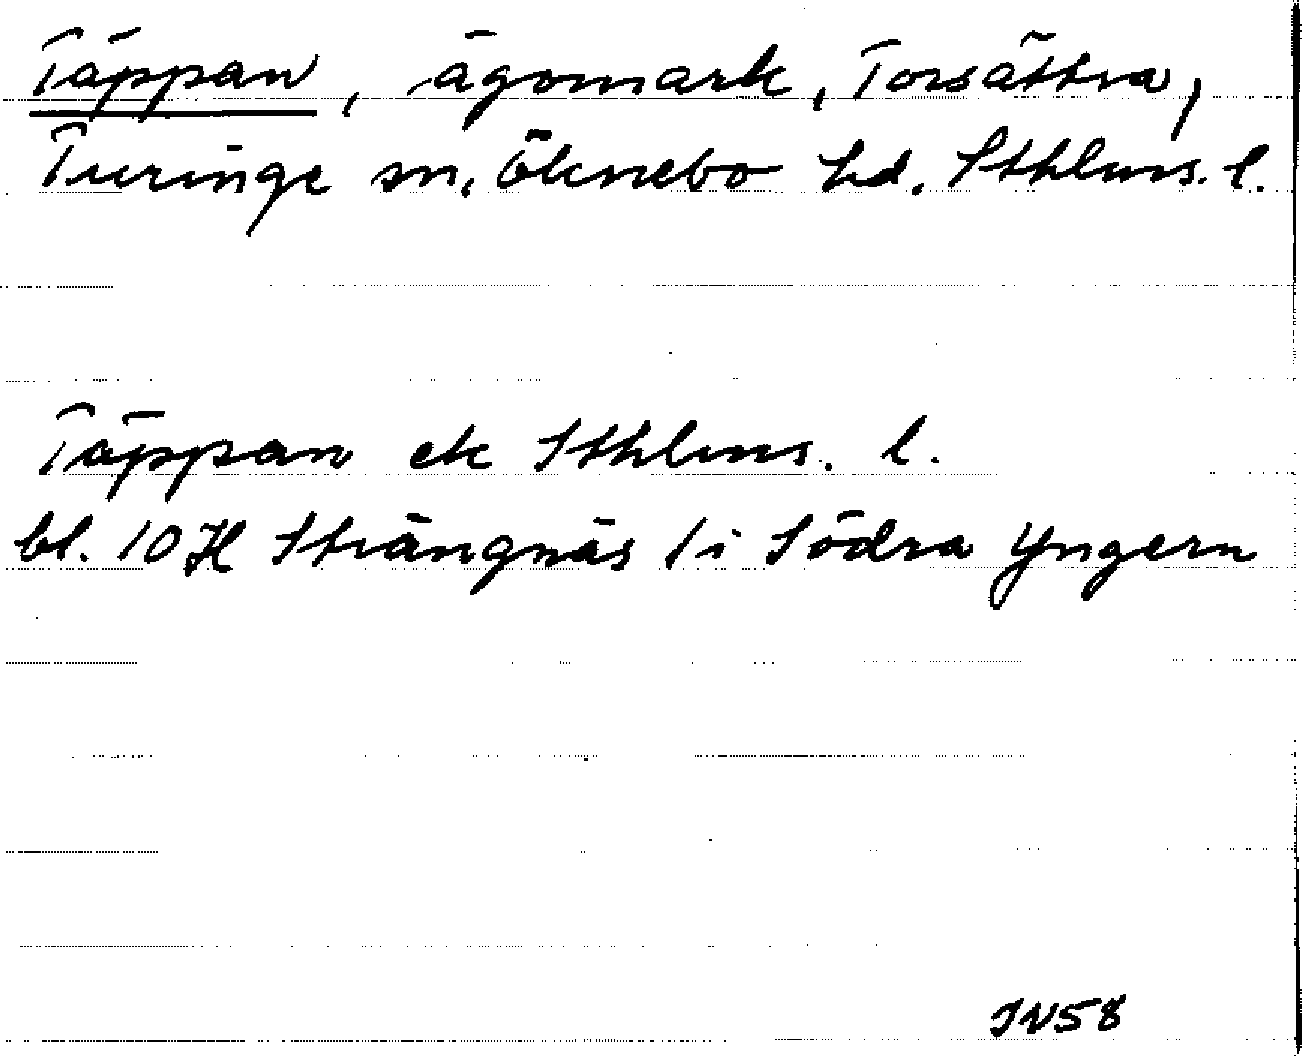 Täppan, ägomark, Torsättra,
Turinge sn, Öknebo hd. Sthlms. l.
Täppan ek Sthlms. l.
bl. 10 H Strängnäs 1 i Södra Yngern
JN58